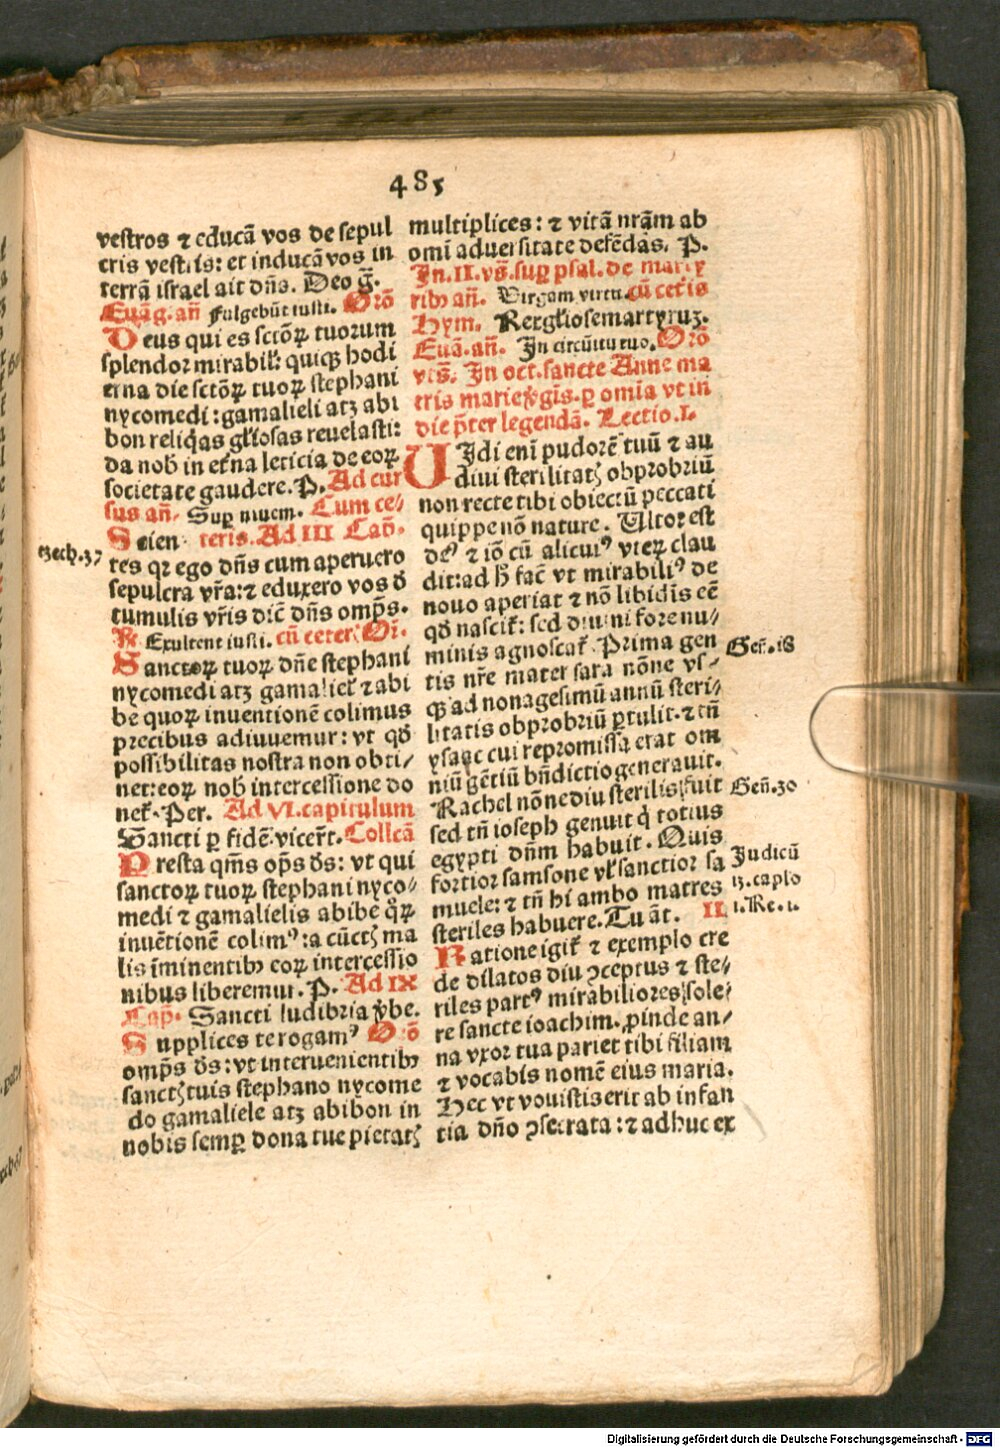 485
vestros ⁊ educā vos de sepul
cris vestris: et inducā vos in
terrā israel ait dn̄s. Deo g̅.
Euāg. an̄ Fulgebūt iusti. Orō
Deus qui es sctōꝝ tuorum
splendor mirabil': quiqꝫ hodi
erna die sctōꝝ tuoꝝ stephani
nycomedi: gamalieli atꝫ abi
bon reliq̄as gl'iosas reuelasti:
da nob̄ in et'na leticia de eoꝝ
societate gaudere. P. Ad cur
sus an̄. Suꝑ niuem. Cum ce⸗
teris. Ad III Cap̄.
Scien
tes qꝛ ego dn̄s cum aperuero
sepulcra vr̄a: ⁊ eduxero vos d̄
tumulis vr̄is dic̄ dn̄s omp̄s.
℟ Exultent iusti. cū ceter' Or̄.
Sanctoꝝ tuoꝝ dn̄e stephani
nycomedi atꝫ gamaliel' ⁊ abi
be quoꝝ inuentionē colimus
precibus adiuuemur: vt qd̄
possibilitas nostra non obti⸗
net: eoꝝ nob̄ intercessione do
net'. Per. Ad VI. capitulum
Sancti ꝑ fidē vicer̄t. Collcā
Presta qm̄s op̄s ds̄: vt qui
sanctoꝝ tuoꝝ stephani nyco⸗
medi ⁊ gamalielis abibe qͦꝝ
inuētionē colimꝰ: a cūctꝭ ma
lis īminentibꝫ eoꝝ intercessio
nibus liberemur. P. Ad IX
Cap̄. Sancti ludibria ⁊ vbe.
Supplices te rogamꝰ Orō
omp̄s ds̄: vt interuenientibꝫ
sanctꝭ tuis stephano nycome
do gamaliele atꝫ abibon in
nobis semꝑ dona tue pietatꝭ
ezech. 37
multiplices: ⁊ vitā nrām ab
omi aduersitate defēdas. P.
In. II. vs̄. suꝑ psal. de marty
ribꝫ an̄. Virgam virtu. cū cet'is
Hym. Rex gl'iose martyruꝫ.
Euā. an̄. In circūitu tuo. Orō
vts̄. In oct. sancte Anne ma
tris marie ꝟgīs. ꝑ omīa vt in
die p̄ter legendā. Lectio. I.
UIdi eni pudorē tuū ⁊ au
diui sterilitatꝭ obprobriū
non recte tibi obiectū peccati
quippe nō nature. Vltor est
deꝰ ⁊ iō cū alicuiꝰ vterꝫ clau
dit: ad h̄ fac̄ vt mirabiliꝰ de
nouo aperiat ⁊ nō libidīs eē
qd̄ nascit': sed diuini fore nu⸗
minis agnoscat'. Prima gen
tis nr̄e mater sara nōne vs⸗
qꝫ ad nonagesimū annū steri⸗
litatis obprobriū ꝑtulit. ⁊ tn̄
ysaac cui repromissa erat om
niū gētiū bn̄dictio generauit.
Rachel nōne diu sterilis fuit
sed tn̄ ioseph genuit q̇ totius
egypti dn̄m habuit. Quis
fortior samsone vl' sanctior sa
muele: ⁊ tn̄ hi ambo matres
steriles habuere. Tu āt. II
Ratione igit' ⁊ exemplo cre
de dilatos diu ꝯceptus ⁊ ste⸗
riles partꝰ mirabiliores sole⸗
re sancte ioachim. ꝓinde an⸗
na vxor tua pariet tibi filiam
⁊ vocabis nomē eius maria.
Hec vt vouistis erit ab infan
tia dn̄o ꝯsecrata: ⁊ adhuc ex
Gen̄. 18
Gen̄. 30
Judicū
13. caplo
1. Re. 1.
Digitalisierung gefördert durch die Deutsche Forschungsgemeinschaft - DFG